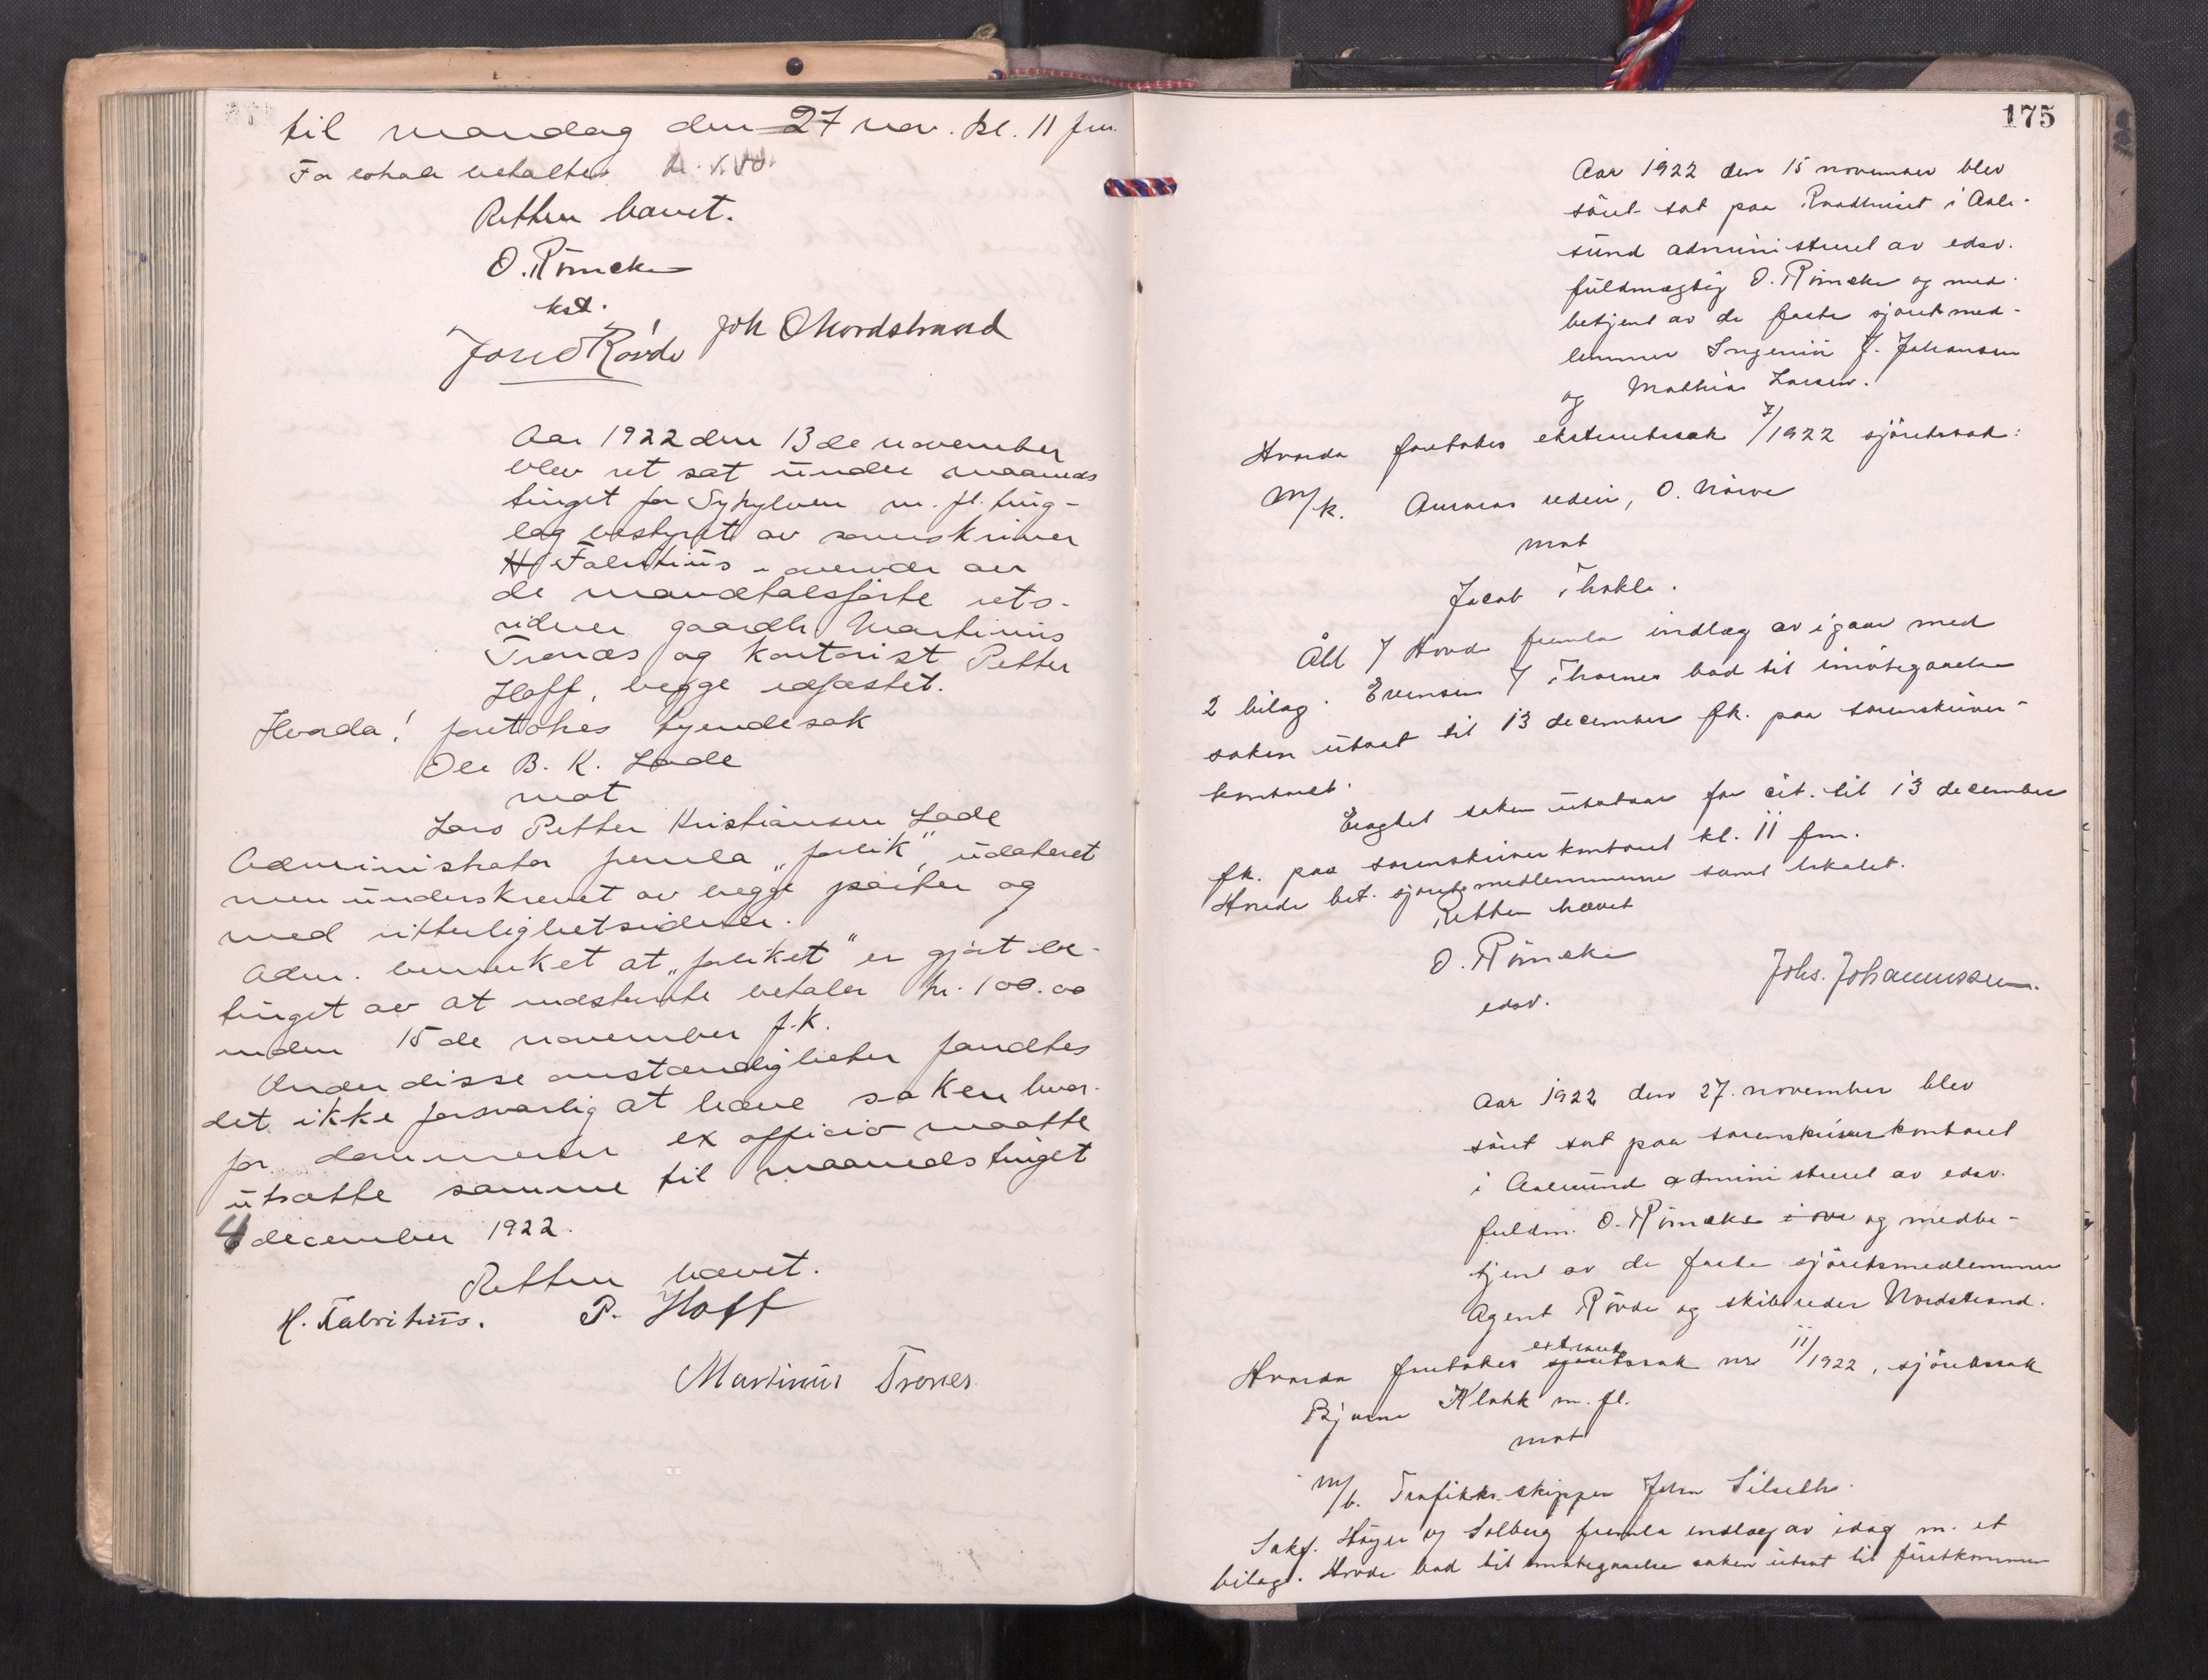 til mandag den 27 nov. kl. 11 fm.
For lokale betaltes kr.
Retten hævet.
O. Römcke
kst.
Joh O Nordstrand
Rövde
Aar 1922 den 13 de november
blev ret sat under maaneds
tinget for Sykylven m. fl. ting-
lag bestyret av sorenskriver
H Fabritius i overvær av
de mandtalsförte rets-
vidner gaardb. Martinus
Tronæs og kontorist Petter
Hoff, begge edfæstet.
Hvorda! foretokes tyendesak
Ole B. K. Lade
mot
Lars Petter Kristiansen Lade
Administrator fremla "forlik", udateret
men underskrevet av begge parter og
med vitterlighetsvidner.
Adm. bemerket at "forliket" er gjort be-
tinget av at indstevnte betaler kr. 100.00
inden 15 de november f. k.
Under disse omstændigheter fandtes
det ikke forsvarlig at hæve saken hvor-
for dommeren ex officio maatte
utsætte samme til maanedstinget
4 december 1922.
Retten hævet.
H. Fabritius. P. Hoff
Martinus Trones
175
Aar 1922 den 15 november blev
söret sat paa Raadhuset i Aale-
sund administreret av edsv.
fuldmægtig O. Römcke og med-
betjent av de faste sjöretmed-
lemmer Ingeniör J. Johansen
og Mathias Larsen.
Hvorda foretokes ekstraretssak 7/1922 sjöretssak:
M/k. Aurnes rederi, O. Nörve
mot
Jacob Thokle.
Hovde fremla indlæg av igaar med
2 bilag. Evensen Thornes bad til imötegaaelse
saken utsat til 13 december fk. paa sorenskriver-
kontoret.
Eragtet saken utsataar for cit. til 13 december
fk. paa sorenskriverkontoret kl. 11 fm.
Hovde bet. sjöretsmedlemmerne samt lokalet.
Retten hævet
O. Römcke
edsv.
Johs. Johannessen.
Aar 1922 den 27. november blev
söret sat paa sorenskriverkontoret
i Aalesund administreret av edsv.
fuldm. O. Römcke og medbe-
tjent av de faste sjöretsmedlemmer
Agent Rövde og skibsreder Nordstrand.
Hvorda foretokes extraretssak nr 11/1922, sjöretssak
Bjarne Klokk m. fl.
mot
M/b. Trafikks skipper John Silseth.
Sakf. Höyer og Solberg fremla indlæg av idag m. et
bilag. Hovde bad til imötegaaelse saken utsat til förstkommen